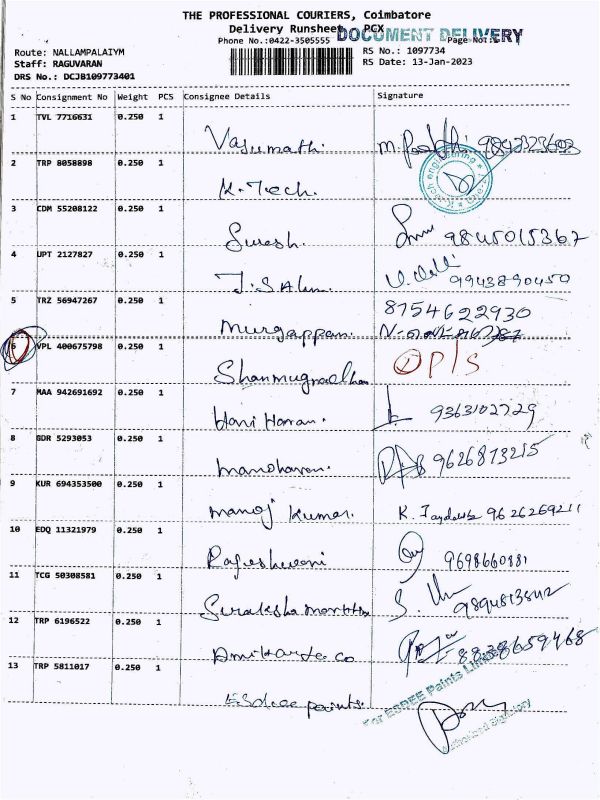 THE PROFESSIONAL COURIERS, Coimbatore
Delivery Runsheet PCX
DOCUMENT DELIVERY
Phone No.:0422-3505555 Page No:
Route: NALLAMPALAIYM RS No.: 1097734
Staff: RAGUVARAN RS Date: 13-Jan-2023
DRS No.: DCJB109773401
S No Consignment No Weight PCS Consignee Details Signature
1 TVL 7716631 0.250 1
Vasumathi
2 TRP 8058898 0.250 1
K.Tech.
3 CDM 55208122 0.250 1
Suresh. 9845015367
4 UPT 2127827 0.250 1
9943890450
5 TRZ 56947267 0.250 1 8754622930
Murgappan.
6 VPL 400675798 0.250 1 P/S
7 MAA 942691692 0.250 1
Hari Haran. 9363102729
8 GDR 5293053 0.250 1
manoharan. 9626813215
9 KUR 694353500 0.250 1
manoj kumar. 9626269211
10 EDQ 11321979 0.250 1
Rajeshwari 9698660881
11 TCG 50308581 0.250 1
12 TRP 6196522 0.250 1
8838659468
13 TRP 5811017 0.250 1
For ESDEE Paints Limited
paints.
Authorised Signatory